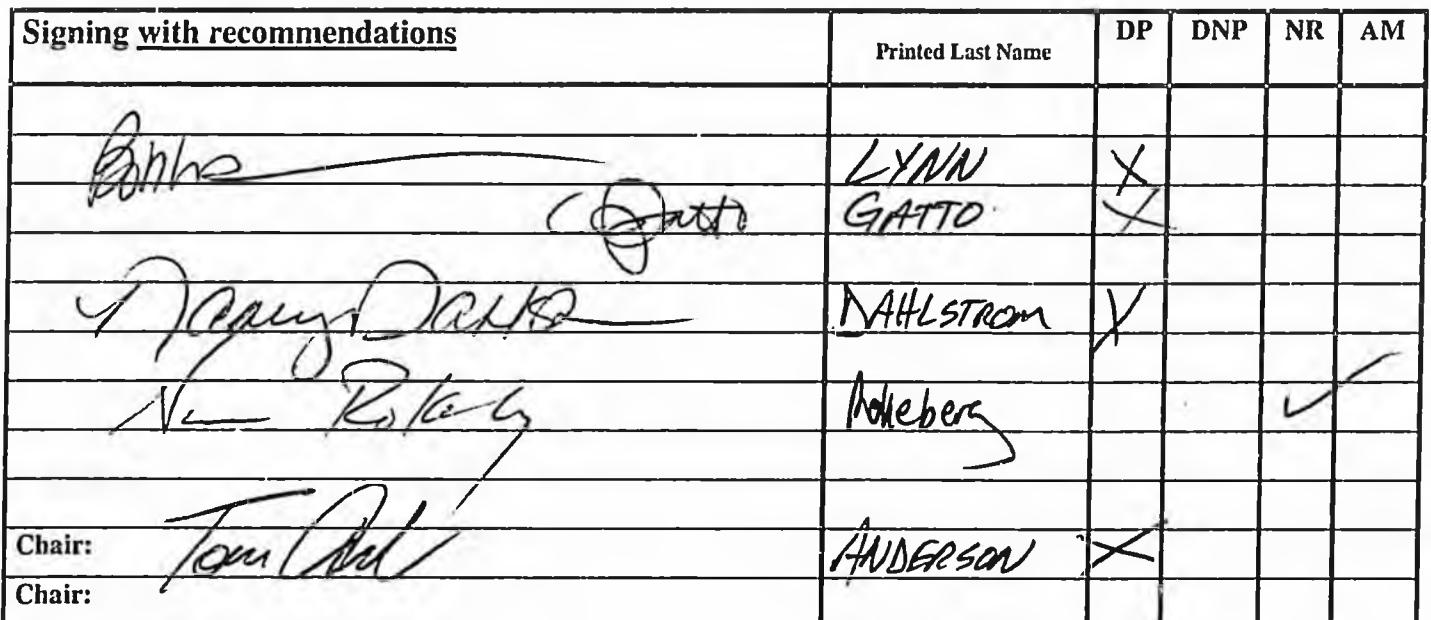 Signing with recommendations Printed Last Name DP DNP NR AM
LYNN X
Gatto GATTO X
Nancy Dahls DAHLSTROM X
Rokeberg ✓
Chair: Tom ANDERSON X
Chair: